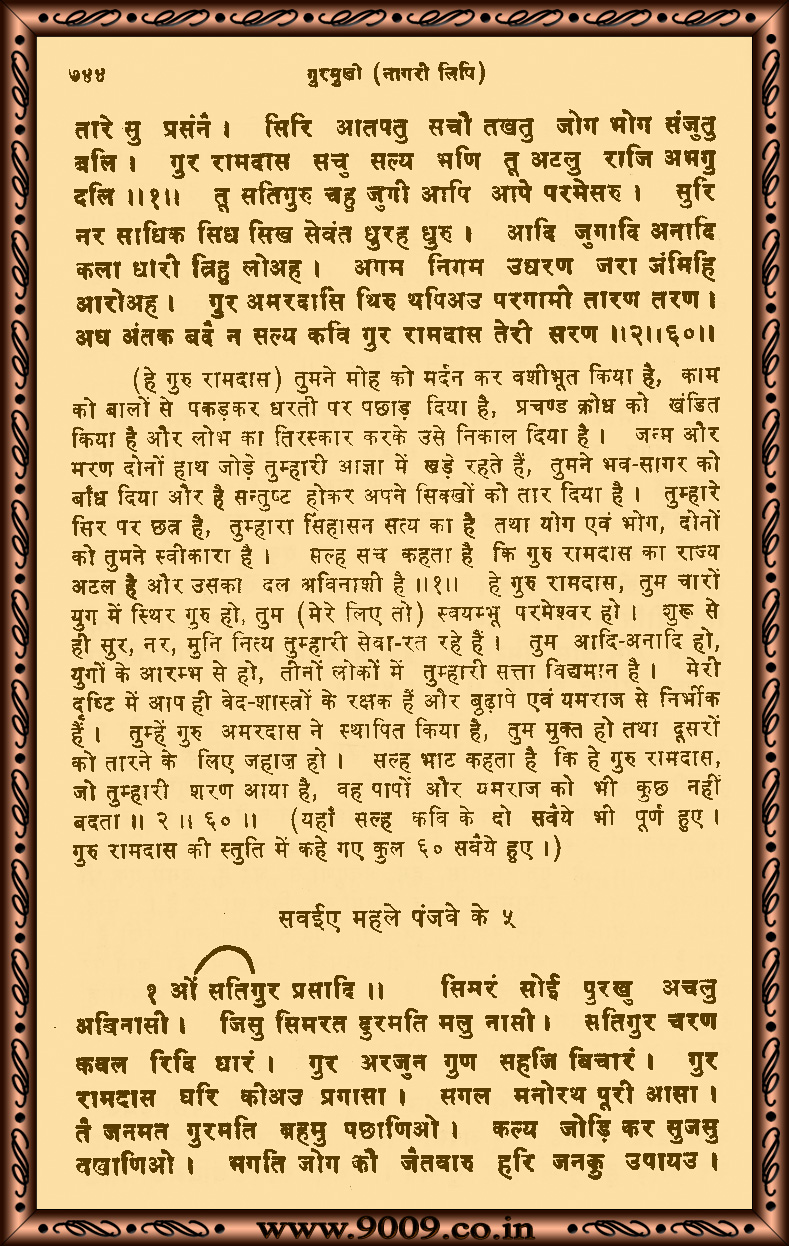 ७४४ गुरमुखी (नागरी लिपि)
तारे सु प्रसंनै । सिरि आतपतु सचौ तखतु जोग भोग संजुतु
बलि । गुर रामदास सचु सल्य भणि तू अटलु राजि अभगु
दलि ॥१॥ तू सतिगुरु चहु जुगी आपि आपे परमेसरु । सुरि
नर साधिक सिध सिख सेवंत धुरह धुरु । आदि जुगादि अनादि
कला धारी त्रिहु लोअह । अगम निगम उधरण जरा जंमिहि
आरोअह । गुर अमरदासि थिरु थपिअउ परगामी तारण तरण ।
अघ अंतक बदै न सल्य कवि गुर रामदास तेरी सरण ॥२॥६०॥
(हे गुरु रामदास) तुमने मोह को मर्दन कर वशीभूत किया है, काम
को बालों से पकड़कर धरती पर पछाड़ दिया है, प्रचण्ड क्रोध को खंडित
किया है और लोभ का तिरस्कार करके उसे निकाल दिया है । जन्म और
मरण दोनों हाथ जोड़े तुम्हारी आज्ञा में खड़े रहते हैं, तुमने भव-सागर को
बाँध दिया और है सन्तुष्ट होकर अपने सिक्खों को तार दिया है । तुम्हारे
सिर पर छत्र है, तुम्हारा सिंहासन सत्य का है तथा योग एवं भोग, दोनों
को तुमने स्वीकारा है । सल्ह सच कहता है कि गुरु रामदास का राज्य
अटल है और उसका दल अविनाशी है ॥१॥ हे गुरु रामदास, तुम चारों
युग में स्थिर गुरु हो, तुम (मेरे लिए तो) स्वयम्भू परमेश्वर हो । शुरू से
ही सुर, नर, मुनि नित्य तुम्हारी सेवा-रत रहे हैं । तुम आदि-अनादि हो,
युगों के आरम्भ से हो, तीनों लोकों में तुम्हारी सत्ता विद्यमान है । मेरी
दृष्टि में आप ही वेद-शास्त्रों के रक्षक हैं और बुढ़ापे एवं यमराज से निर्भीक
हैं । तुम्हें गुरु अमरदास ने स्थापित किया है, तुम मुक्त हो तथा दूसरों
को तारने के लिए जहाज़ हो । सल्ह भाट कहता है कि हे गुरु रामदास,
जो तुम्हारी शरण आया है, वह पापों और यमराज को भी कुछ नहीं
बदता ॥ २ ॥ ६० ॥ (यहाँ सल्ह कवि के दो सवैये भी पूर्ण हुए ।
गुरु रामदास की स्तुति में कहे गए कुल ६० सवैये हुए ।)
सवईए महले पंजवे के ५
१ ओं सतिगुर प्रसादि ॥ सिमरं सोई पुरखु अचलु
अबिनासी । जिसु सिमरत दुरमति मलु नासी । सतिगुर चरण
कवल रिदि धारं । गुर अरजुन गुण सहजि बिचारं । गुर
रामदास घरि कीअउ प्रगासा । सगल मनोरथ पूरी आसा ।
तै जनमत गुरमति ब्रहमु पछाणिओ । कल्य जोड़ि कर सुजसु
वखाणिओ । भगति जोग कौ जैतवारु हरि जनकु उपायउ ।
www.9009.co.in